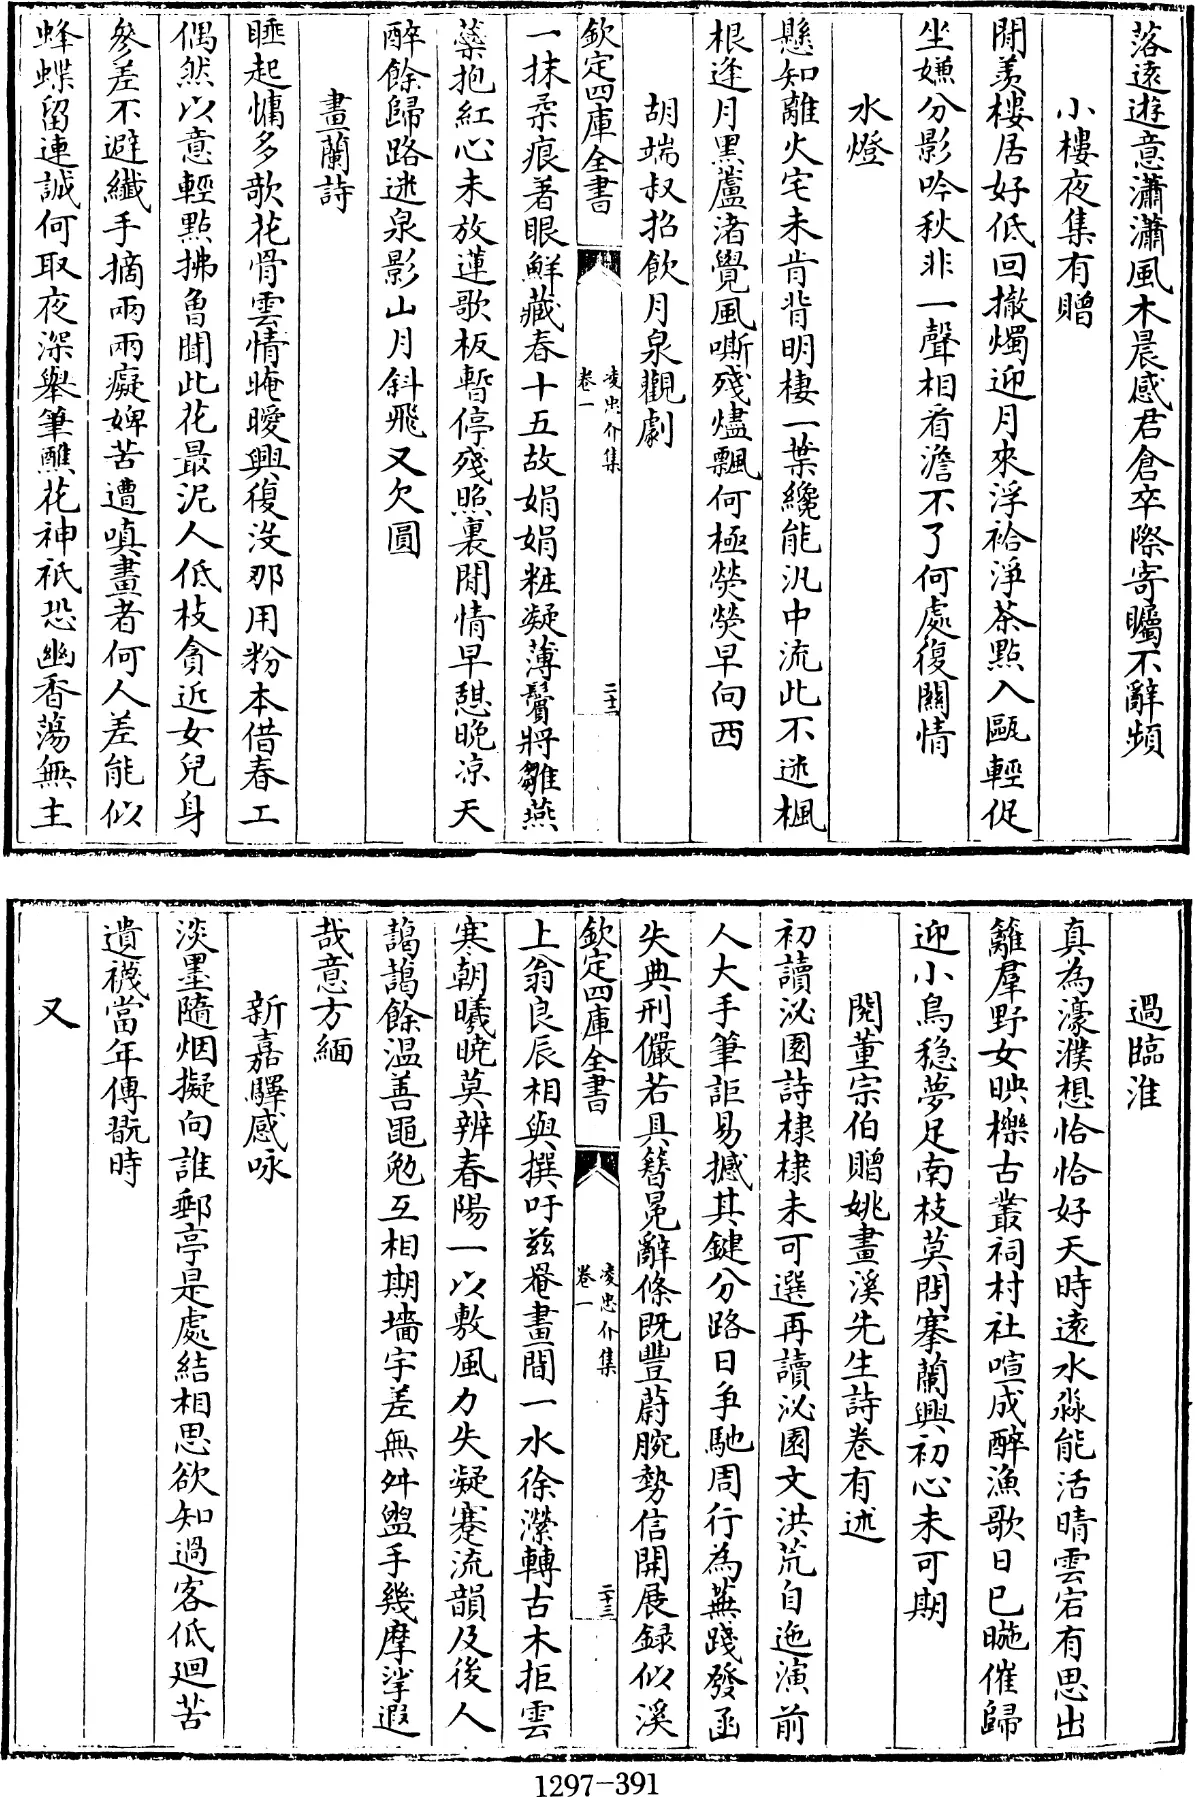 落遠遊意瀟瀟風木晨感君倉卒際寄矚不辭頻
小樓夜集有贈
閒羡樓居好低回撤燭迎月來浮袷淨茶點入甌輕促
坐嫌分影吟秋非一聲相看澹不了何處復關情
水燈
懸知離火宅未肯背明棲一葉纔能汎中流此不迷楓
根逢月黑蘆渚覺風嘶殘燼飄何極熒熒早向西
胡端叔招飲月泉觀劇
欽定四庫全書
凌忠介集
卷一
二十二
一抹柔痕著眼鮮藏春十五故娟娟粧凝薄鬢將雛燕
蘂抱紅心未放蓮歌板暫停殘照裏閒情早憇晚凉天
醉餘歸路迷泉影山月斜飛又欠圓
畫蘭詩
睡起慵多欹花骨雲情晻曖興復沒那用粉本借春工
偶然以意輕點拂魯聞此花最泥人低枝貪近女兒身
參差不避纖手摘兩兩癡婢苦遭嗔畫者何人差能似
蜂蝶留連誠何取夜深舉筆醮花神祇恐幽香蕩無主
過臨淮
真為濠濮想恰恰好天時遠水淼能活晴雲宕有思出
籬羣野女映櫟古叢祠村社喧成醉漁歌日已暆催歸
迎小鳥穏夢足南枝莫問搴蘭興初心未可期
閱董宗伯贈姚畫溪先生詩卷有述
初讀泌園詩棣棣未可選再讀泌園文洪荒自迤演前
人大手筆詎易撼其鍵分路日爭馳周行為蕪踐發函
失典刑儼若具簪冕辭條既豐蔚腕勢信開展録似溪
欽定四庫全書
凌忠介集
卷一
二十三
上翁良辰相與撰吁兹罨畫間一水徐瀠轉古木拒雲
寒朝曦曉莫辨春陽一以敷風力失凝蹇流韻及後人
藹藹餘温善黽勉互相期墻宇差無舛盥手幾摩挲遐
哉意方緬
新嘉驛感咏
淡墨隨烟擬向誰郵亭是處結相思欲知過客低廻苦
遺襪當年傳翫時
又
1297-391